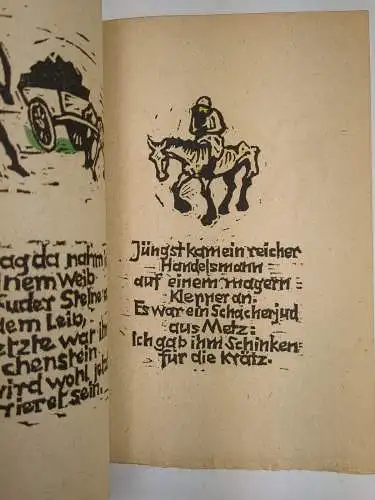 ag da nahm
inem Weib
Fuder Steine
dem Leib,
etzte war ih
chenstein.
wird wohl jetzt
rieret sein.
Jüngst kam ein reicher
Handelsmann
auf einem magern
Klepper an.
Es war ein Schacherjud
aus Metz:
Ich gab ihm Schinken
für die Krätz.